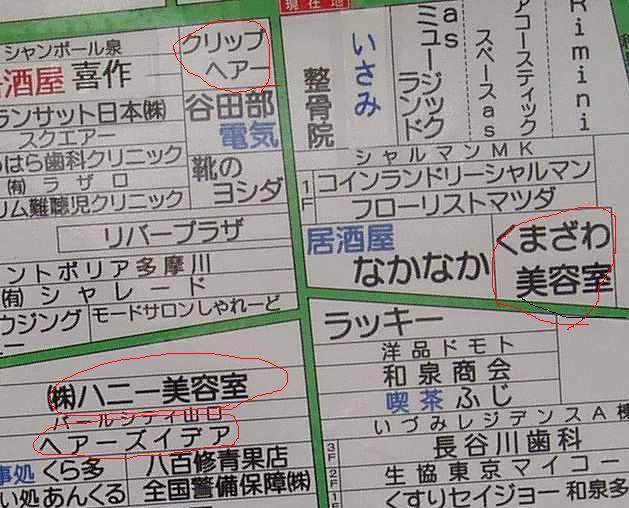 現在地
シャンポール泉
居酒屋 喜作
ランサット日本㈱
スクエアー
はら歯科クリニック
㈲ ラ ザ ロ
リム難聴児クリニック
クリップ
ヘアー
谷田部
電気
靴の
ヨシダ
リバープラザ
ントポリア多摩川
㈲ シャレード
ウジング
モードサロンしゃれーど
整骨院
いさみ
ミュージック
ランド
as
スペースas
アコースティック
Rimini
シャルマンMK
1F
コインランドリーシャルマン
フローリストマツダ
居酒屋
なかなか
くまざわ
美容室
㈱ハニー美容室
パールシティ山口
ヘアーズイデア
事処 くら多
い処 あんくる
八百修青果店
全国警備保障㈱
ラッキー
洋品ドモト
和泉商会
喫茶 ふじ
いづみレジデンスA棟
3F 長谷川歯科
2F 生協東京マイコー
1F くすりセイジョー和泉多